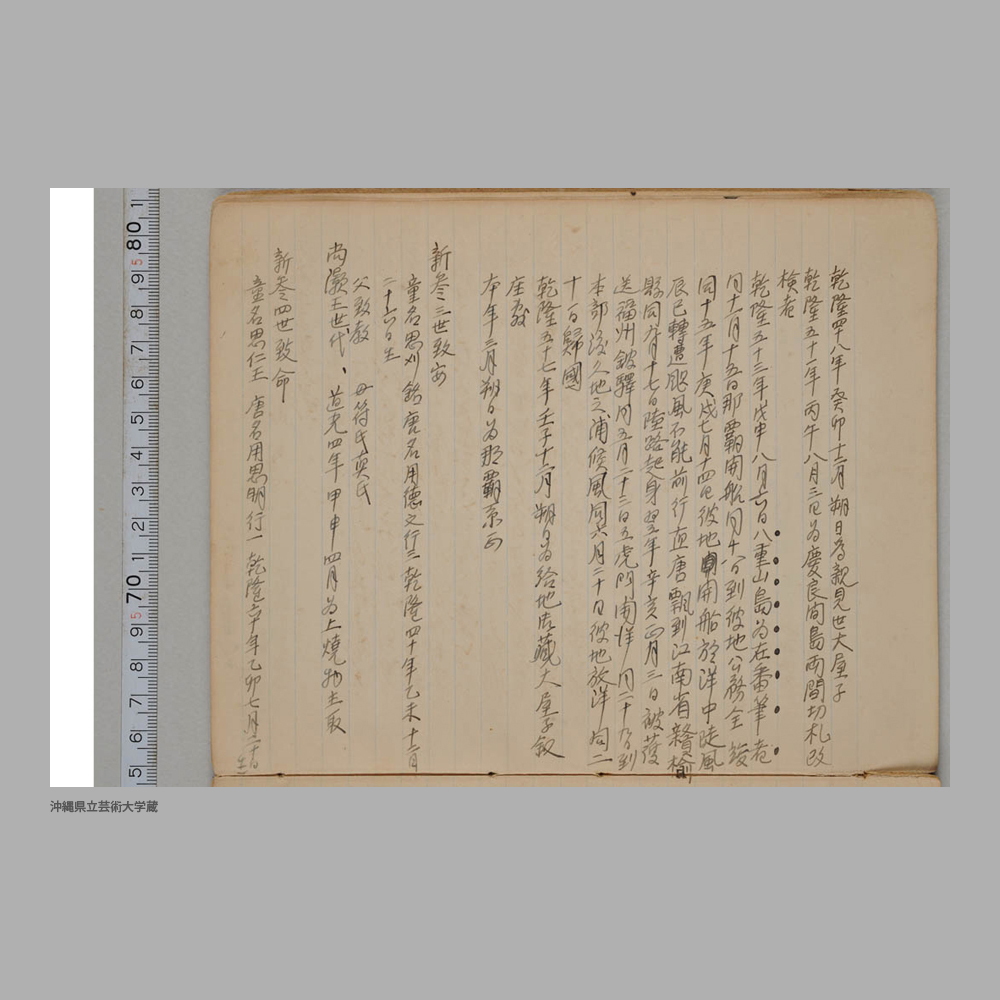 乾隆四八年癸卯十二月朔日為親見世大屋子
乾隆五十一年丙午八月三日為慶良間島両間切札改
検者
乾隆五十三年戊申八月六日八重山島為在番筆者
同十一月十五日那覇開船同十八日到彼地公務全竣
同十五年庚戌七月十四日彼地開船於洋中陡風
辰巳轉遭颶風不能前行直唐飄到江南省贛榆
縣同九月十七日陸路起身翌年辛亥正月三日被護
送福州館驛同五月二十三日五虎門開洋同二十九日到
本部渡久地之浦候風同六月二十日彼地放洋同二
十一日歸國
乾隆五十七年壬子十二月朔日為給地御藏大屋子叙
座敷
本年三月朔日為那覇系正
新參三世致安
童名思刈銘唐名用德文行三乾隆四十年乙未十二月
二十六日生
父致教 母符氏真氏
尚灝王世代、道光四年甲申四月為上燒物主取
新參四世致命
童名思仁王 唐名用思明行一乾隆六十年乙卯七月二十日生